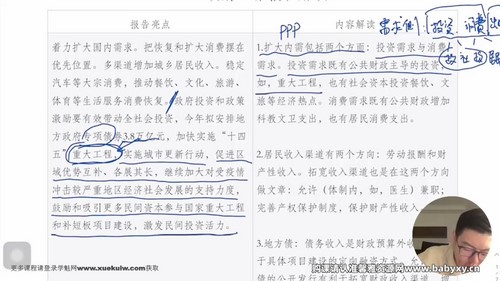 报告亮点
内容解读
PPP
需求侧:投资 消费
着力扩大国内需求。把恢复和扩大消费摆在
优先位置。多渠道增加城乡居民收入。稳定
汽车等大宗消费,推动餐饮、文化、旅游、
体育等生活服务消费恢复。政府投资和政策
激励要有效带动全社会投资,今年拟安排地
方政府专项债券3.8万亿元,加快实施“十四
五”重大工程,实施城市更新行动,促进区
域优势互补、各展其长,继续加大对受疫情
冲击较严重地区经济社会发展的支持力度,
鼓励和吸引更多民间资本参与国家重大工程
和补短板项目建设,激发民间投资活力。
1.扩大内需包括两个方面:投资需求与消费
需求。投资需求既有公共财政主导的投资,
如,重大工程,也有社会资本投资餐饮、文
旅等经济热点。消费需求既有公共财政增加
科教文卫支出,也有居民消费支出。
2.居民收入渠道有两个方向:劳动报酬和财
产性收入。拓宽收入渠道也是在这两个方向
做文章:允许(体制内,如,医生)兼职;
完善产权保护制度,保护财产性收入。
3.地方债:债务收入是财政预算外收
于具体项目建设的定向融资方式。
债的公开发行有利于拓
更多课程请登录学魁网www.xuekuiw.com获取
购课请认准馨雅资源网www.babyxy.cn